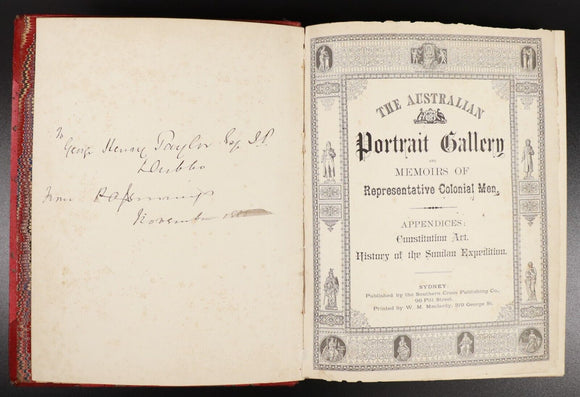 To
George Henry Taylor Esq J.P.
Dubbo
From
November
THE AUSTRALIAN
Portrait Gallery
AND
MEMOIRS OF
Representative Colonial Men.
APPENDICES:
Constitution Act.
History of the Soudan Expedition.
SYDNEY:
Published by the Southern Cross Publishing Co.,
96 Pitt Street.
Printed by W. M. Maclardy, 319 George St.